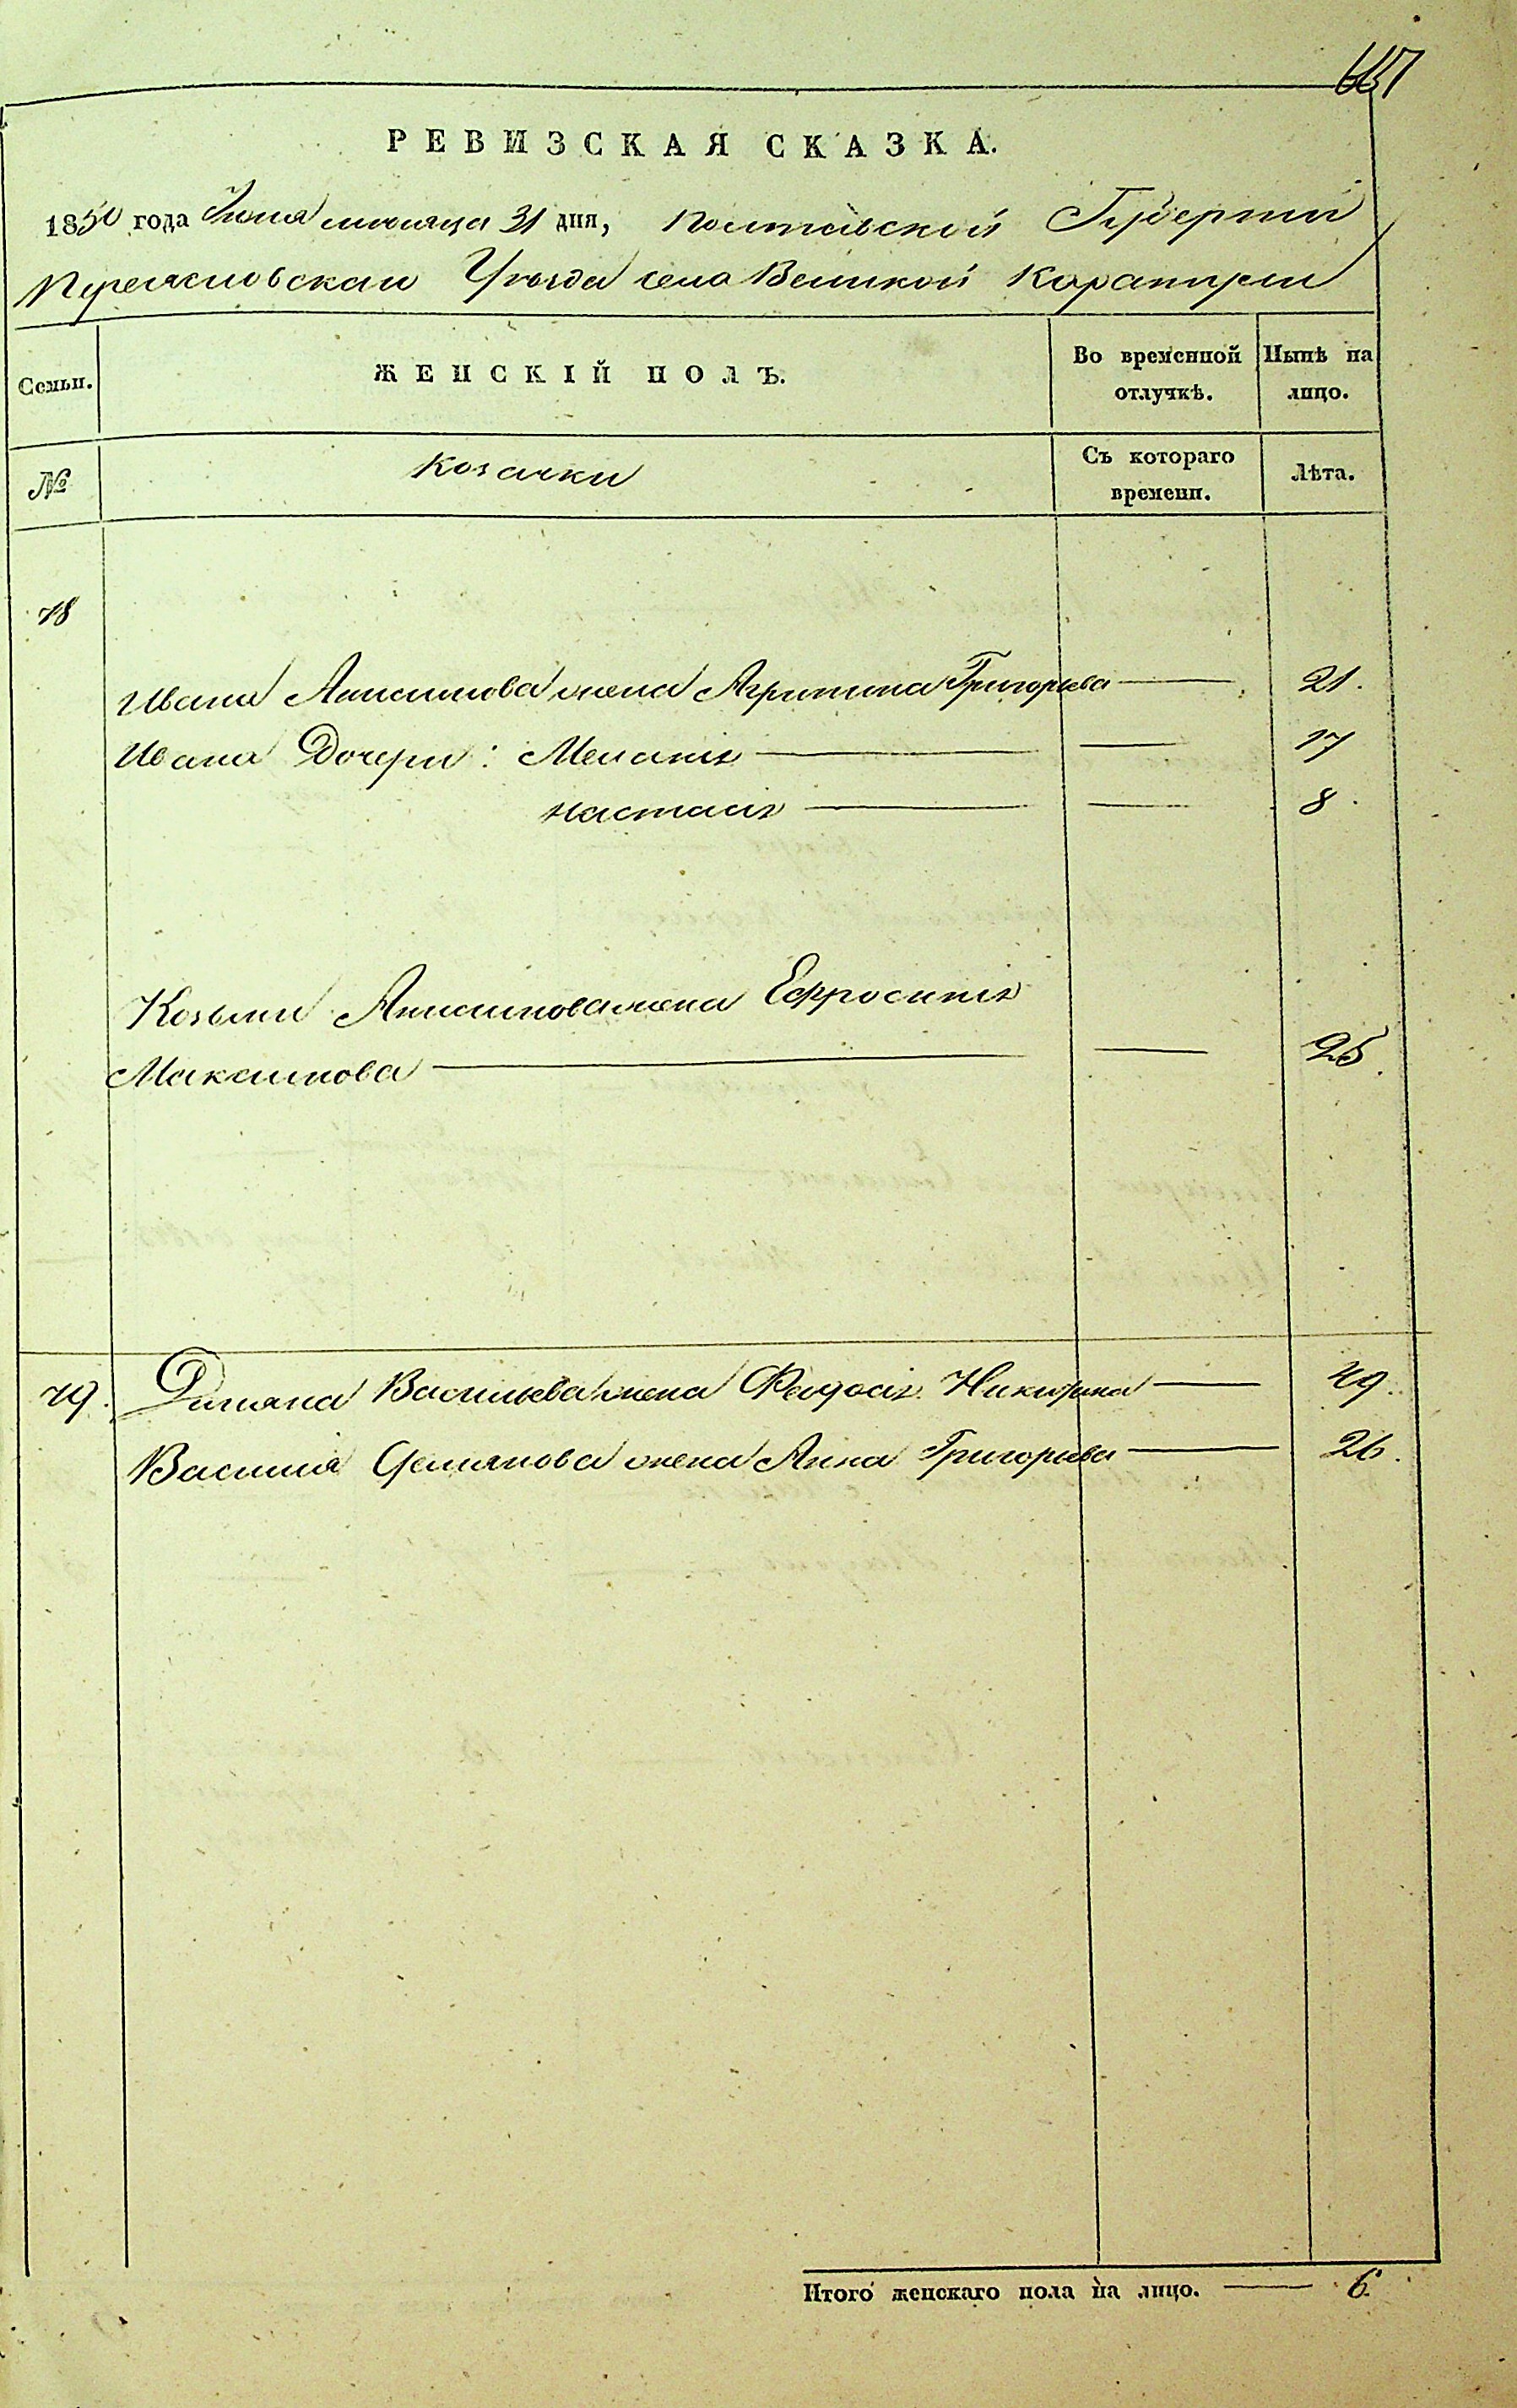 РЕВИЗСКАЯ СКАЗКА.
1850 года месяца 31 дня, Полтавской Губернии
Переясловскаго Уезда села Великой Каратули
Семьи.
ЖЕНСКІЙ ПОЛЪ.
Во временной отлучкѣ.
Нынѣ на лицо.
№
Козачки
Съ котораго времени.
Лѣта.
78
Ивана Анисимова жена Агрипина Григорьева — 21.
Ивана Дочери: Меланія — — 17
Настасія — — 8.
Козьми Анисимова жена Ефросинія
Максимова — — 25.
79. Димяна Васильева жена Феодосія Никитина — 49.
Василія Демянова жена Анна Григорьева — 26.
Итого женскаго пола на лицо. — 6.